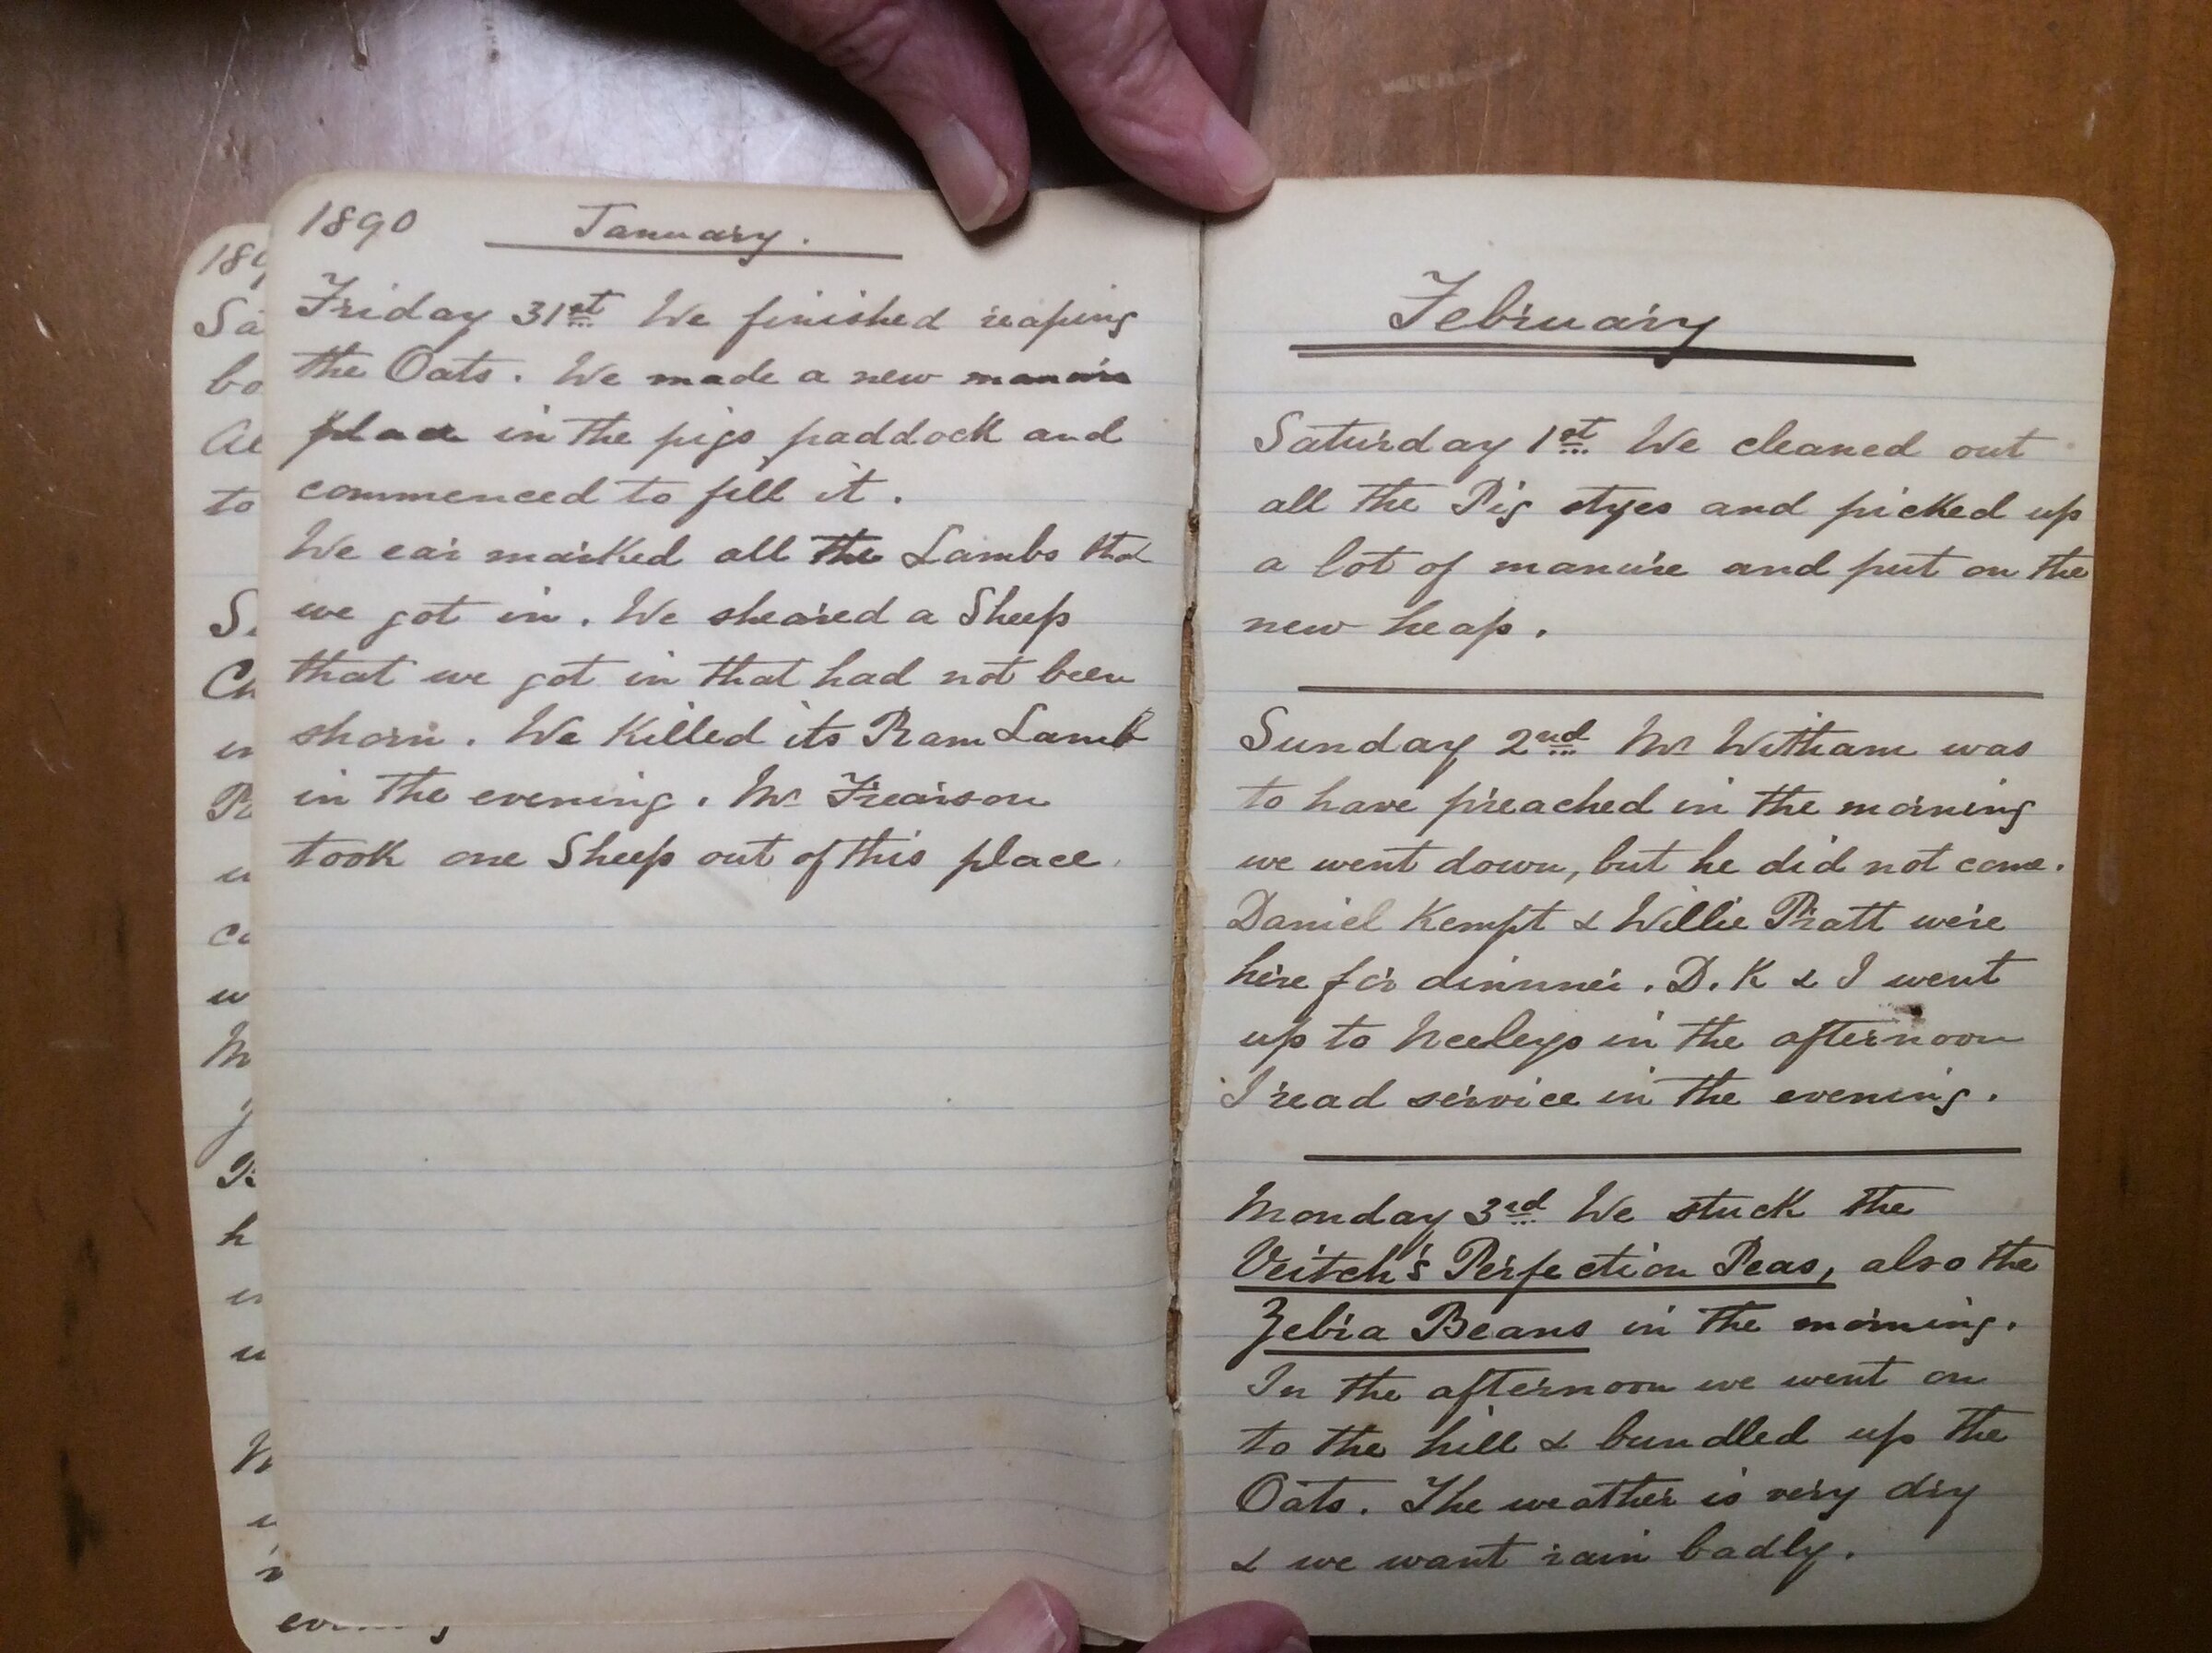 1890 January.
Friday 31st We finished reaping
the Oats. We made a new manure
place in the pigs paddock and
commenced to fill it.
We ear marked all the Lambs that
we got in. We sheared a Sheep
that we got in that had not been
shorn. We Killed its Ram Lamb
in the evening. Mr Frearson
took one Sheep out of this place.
February
Saturday 1st We cleaned out
all the Pig styes and picked up
a lot of manure and put on the
new heap.
Sunday 2nd Mr Witham was
to have preached in the morning
we went down, but he did not come.
Daniel Kempt & Willie Pratt were
here for dinnner. D. K & I went
up to Neeleys in the afternoon
I read service in the evening.
Monday 3rd We stuck the
Veitch's Perfection Peas, also the
Zebra Beans in the morning.
In the afternoon we went on
to the hill & bundled up the
Oats. The weather is very dry
& we want rain badly.